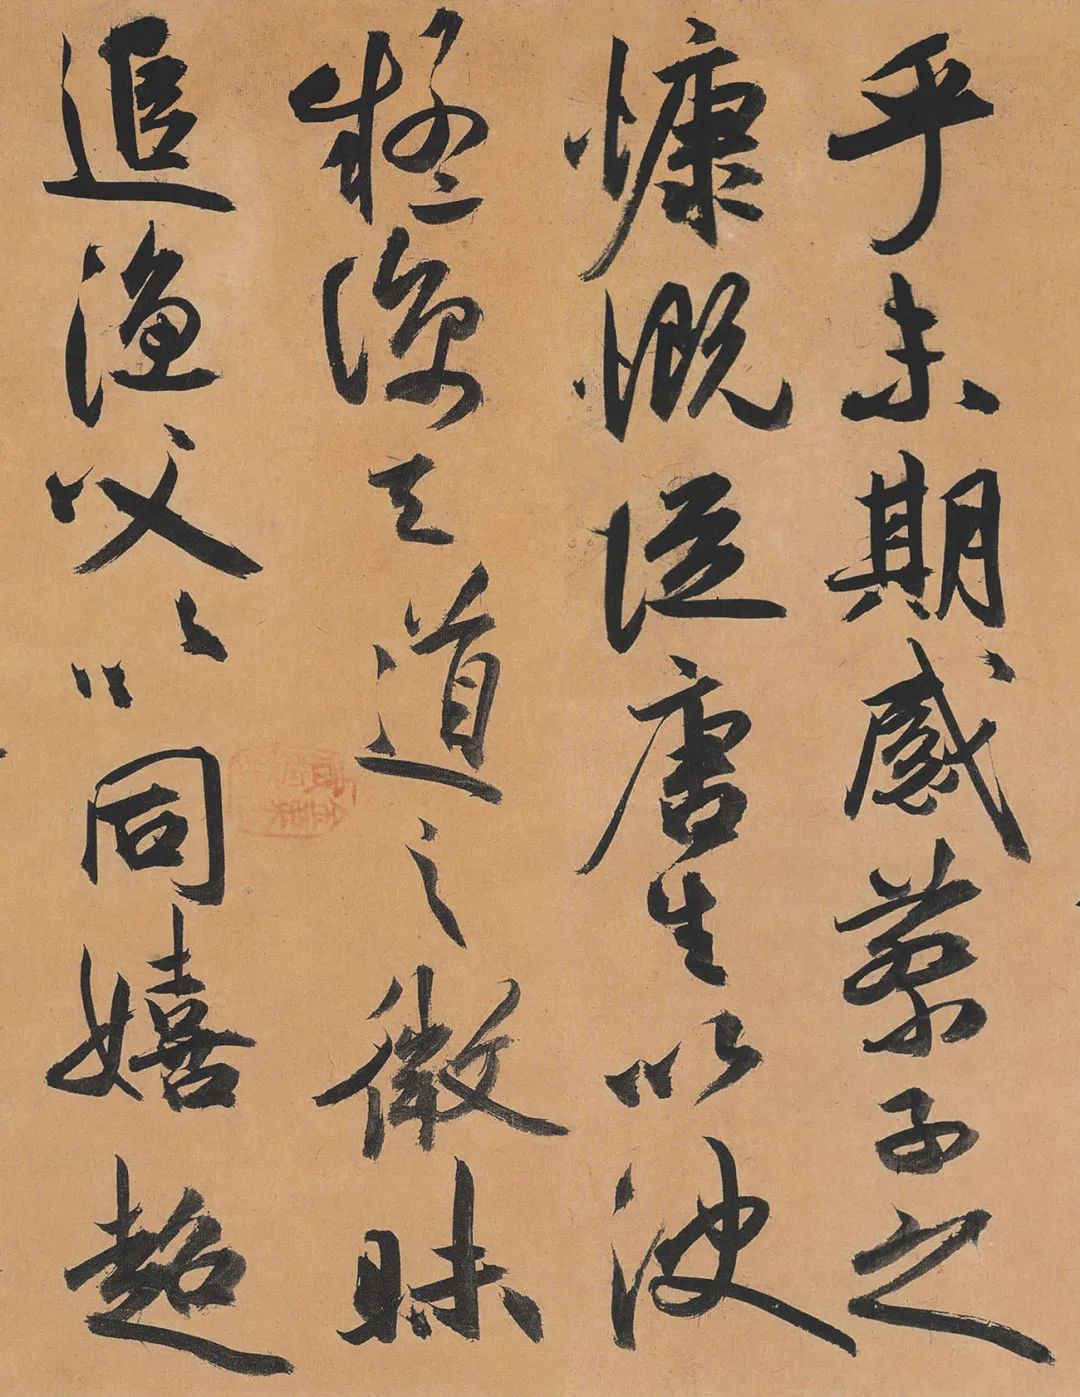 乎未期感蔡子之
慷慨從唐生以決
疑諒天道之微昧
追漁父以同嬉超